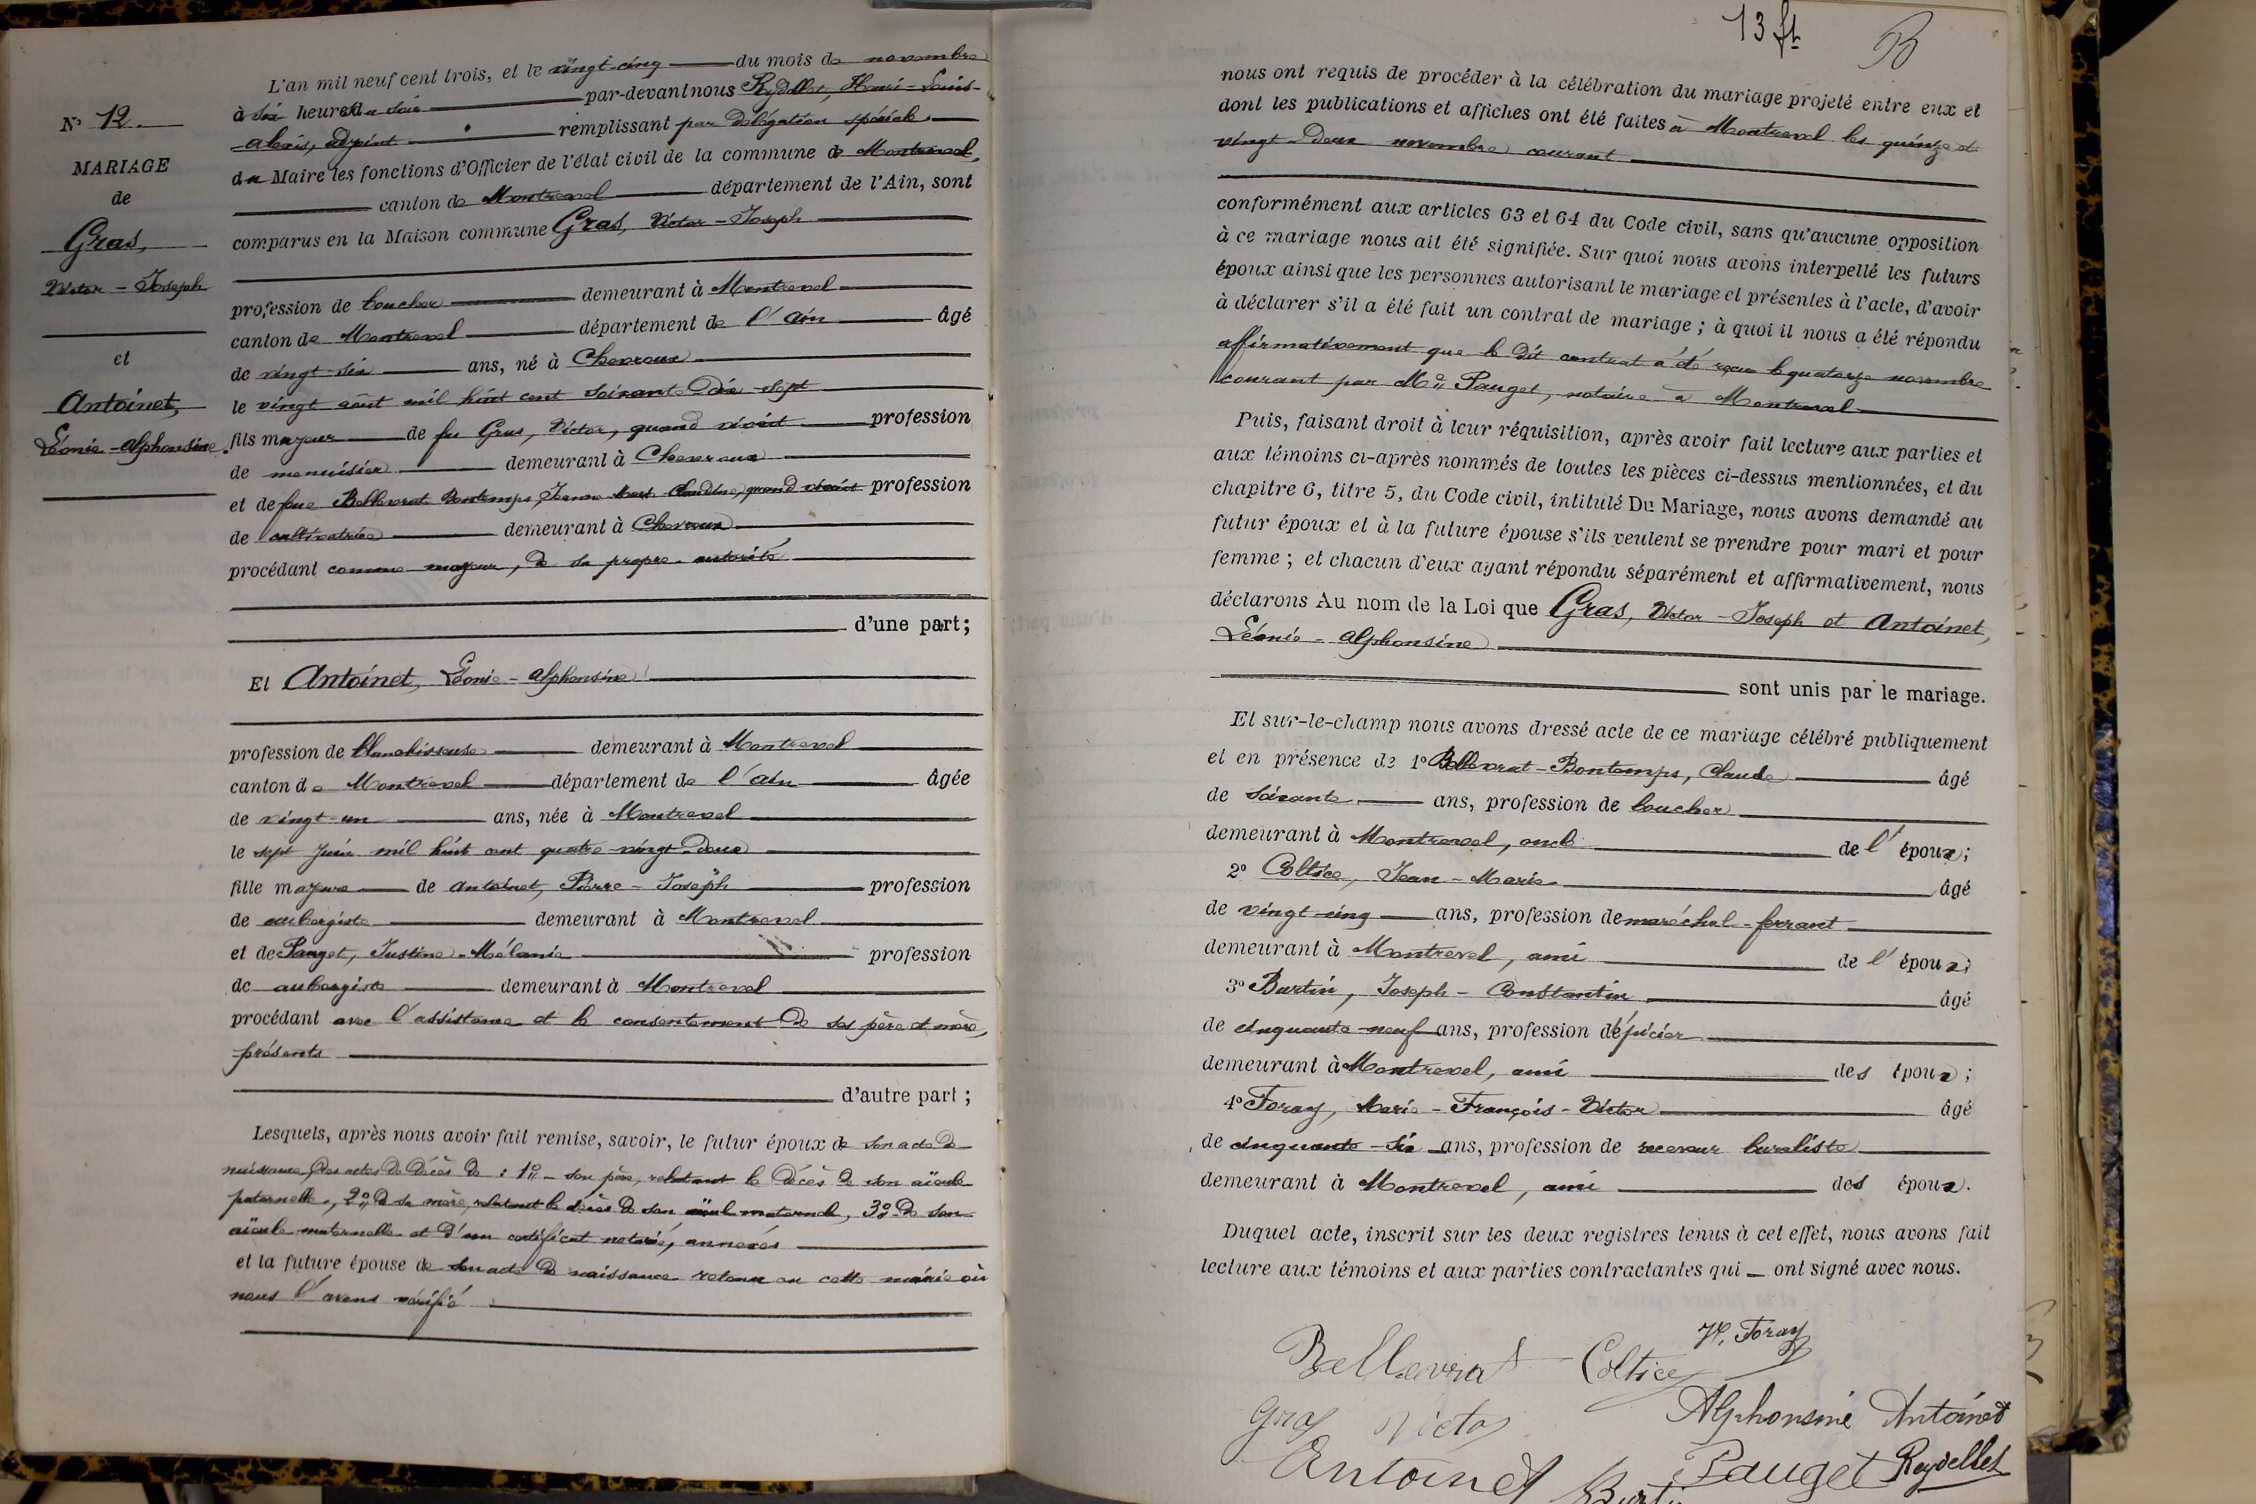 N° 12.
MARIAGE
de
Gras,
Victor - Joseph
et
Antoinet,
Léonie - Alphonsine.
L'an mil neuf cent trois, et le vingt-cinq du mois de novembre
à six heures du soir par-devant nous Reydellet, Henri-Louis-
Alexis, adjoint remplissant par délégation spéciale
du Maire les fonctions d'Officier de l'état civil de la commune de Montrevel,
canton de Montrevel département de l'Ain, sont
comparus en la Maison commune Gras, Victor - Joseph
profession de boucher demeurant à Montrevel
canton de Montrevel département de l'Ain âgé
de vingt-six ans, né à Chevroux
le vingt août mil huit cent soixante-dix-sept
fils majeur de feu Gras, Victor, quand vivait profession
de menuisier demeurant à Chevroux
et de feue Bellevrat Bontemps, Jeanne Marie Claudine, quand vivait profession
de cultivatrice demeurant à Chevroux
procédant comme majeur, de sa propre autorité
d'une part;
Et Antoinet, Léonie - Alphonsine
profession de blanchisseuse demeurant à Montrevel
canton de Montrevel département de l'Ain âgée
de vingt-un ans, née à Montrevel
le sept juin mil huit cent quatre-vingt-deux
fille majeure de Antoinet, Pierre - Joseph profession
de aubergiste demeurant à Montrevel
et de Pauget, Justine - Mélanie profession
de aubergiste demeurant à Montrevel
procédant avec l'assistance et le consentement de ses père et mère,
présents
d'autre part;
Lesquels, après nous avoir fait remise, savoir, le futur époux de son acte de
naissance, des actes de décès de : 1° - son père, relatant le décès de son aïeule
paternelle, 2° de sa mère, relatant le décès de son aïeul maternel, 3° de son
aïeule maternelle et d'un certificat notarié, annexés
et la future épouse de son acte de naissance retenu en cette mairie où
nous l'avons vérifié
13 ft
nous ont requis de procéder à la célébration du mariage projeté entre eux et
dont les publications et affiches ont été faites à Montrevel les quinze et
vingt-deux novembre courant
conformément aux articles 63 et 64 du Code civil, sans qu'aucune opposition
à ce mariage nous ait été signifiée. Sur quoi nous avons interpellé les futurs
époux ainsi que les personnes autorisant le mariage et présentes à l'acte, d'avoir
à déclarer s'il a été fait un contrat de mariage ; à quoi il nous a été répondu
affirmativement que le dit contrat a été reçu le quatorze novembre
courant par Me Pauget, notaire à Montrevel
Puis, faisant droit à leur réquisition, après avoir fait lecture aux parties et
aux témoins ci-après nommés de toutes les pièces ci-dessus mentionnées, et du
chapitre 6, titre 5, du Code civil, intitulé Du Mariage, nous avons demandé au
futur époux et à la future épouse s'ils veulent se prendre pour mari et pour
femme ; et chacun d'eux ayant répondu séparément et affirmativement, nous
déclarons Au nom de la Loi que Gras, Victor - Joseph et Antoinet,
Léonie - Alphonsine
sont unis par le mariage.
Et sur-le-champ nous avons dressé acte de ce mariage célébré publiquement
et en présence de 1° Bellevrat-Bontemps, Claude âgé
de soixante ans, profession de boucher
demeurant à Montrevel, oncle de l'époux;
2° Coltice, Jean - Marie âgé
de vingt-cinq ans, profession de maréchal-ferrant
demeurant à Montrevel, ami de l'époux;
3° Burtin, Joseph - Constantin âgé
de cinquante-neuf ans, profession d'épicier
demeurant à Montrevel, ami des époux;
4° Foray, Marie - François - Victor âgé
de cinquante-six ans, profession de receveur buraliste
demeurant à Montrevel, ami des époux.
Duquel acte, inscrit sur les deux registres tenus à cet effet, nous avons fait
lecture aux témoins et aux parties contractantes qui ont signé avec nous.
V. Foray
Bellevrat Coltice
Gras Victor Alphonsine Antoinet
Antoinet Burtin Pauget Reydellet